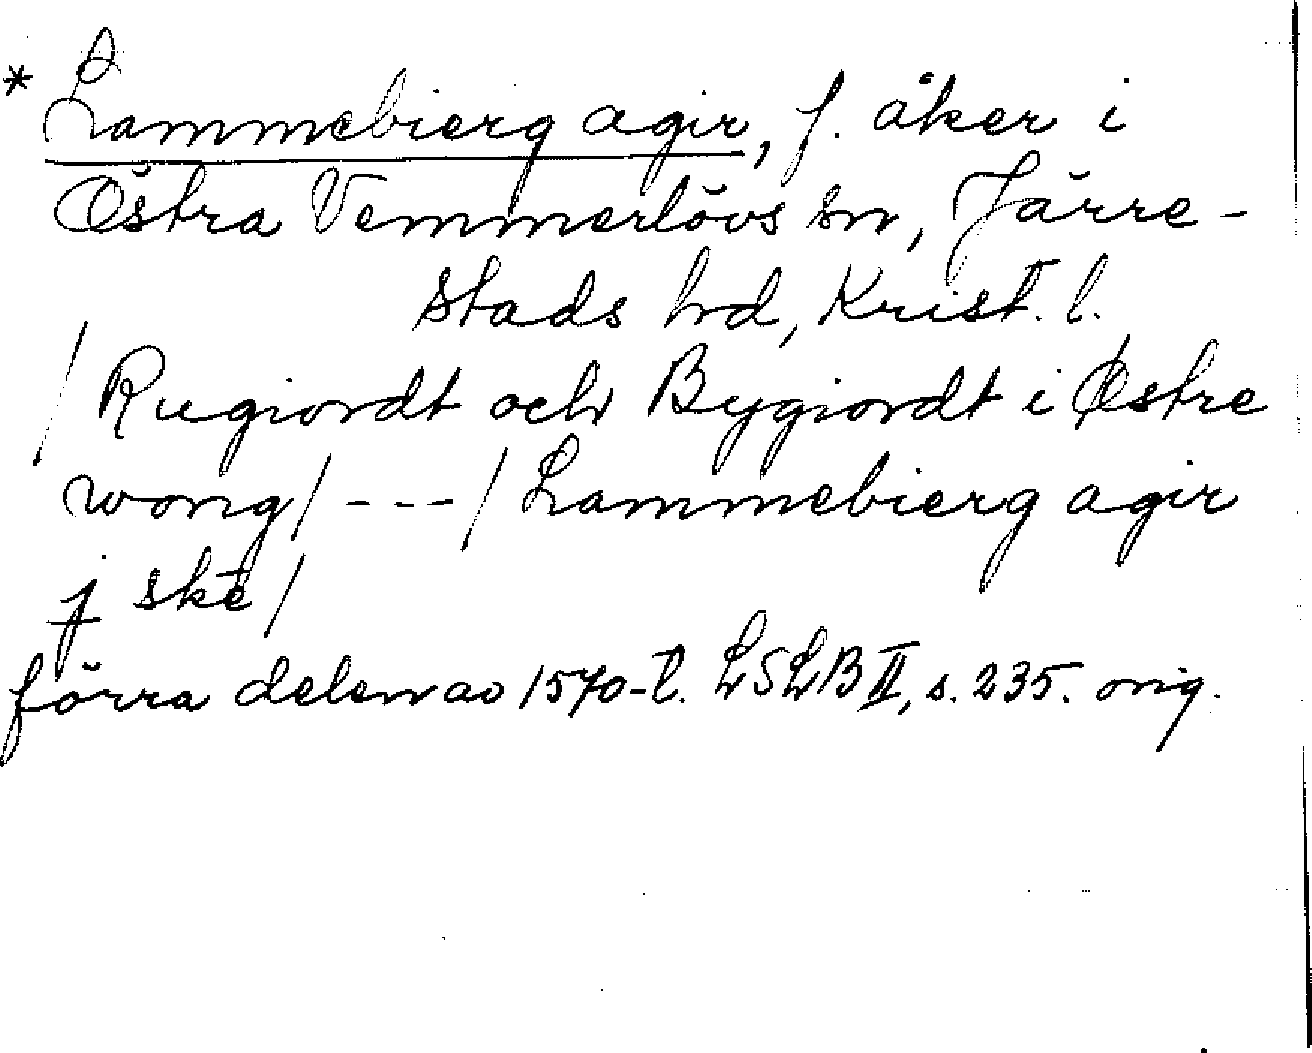 * Lammebierg agir, f. åker i
Östra Vemmerlövs sn, Järre-
stads hd, Krist. l.
/Rugiordt och Bygiordt i Østre
wong/---/Lammebierg agir
j ske/
förra delen av 1570-t. LSLB II, s. 235. orig.